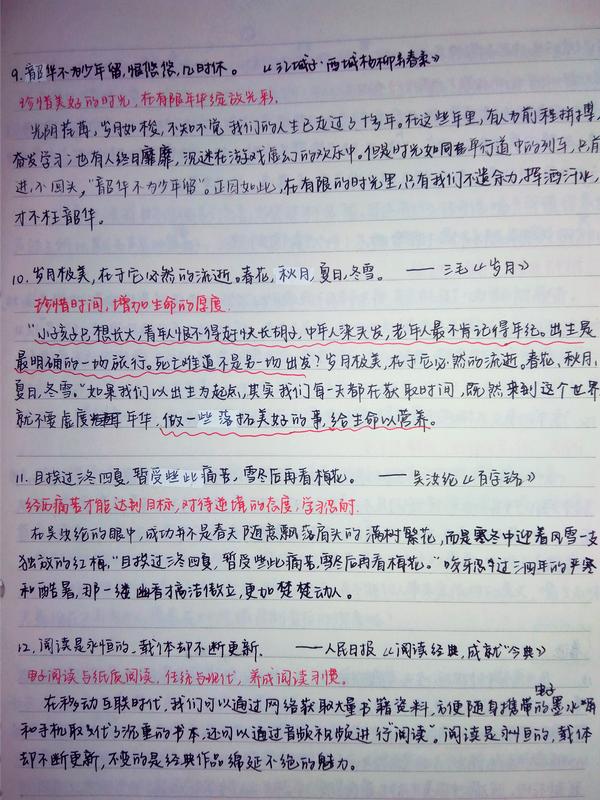 9. 韶华不为少年留,恨悠悠,几时休。 《江城子·西城杨柳弄春柔》
珍惜美好的时光,在有限年华绽放光彩.
光阴荏苒,岁月如梭,不知不觉我们的人生已走过了十多年。在这些年里,有人为前程拼搏,
奋发学习;也有人终日靡靡,沉迷在游戏虚幻的欢乐中。但是时光如同在平行道中的列车,只前
进,不回头,"韶华不为少年留"。正因如此,在有限的时光里,只有我们不遗余力,挥洒汗水,
才不枉韶华。
10. 岁月极美,在于它必然的流逝。春花,秋月,夏日,冬雪。 —— 三毛《岁月》
珍惜时间,增加生命的厚度.
"小孩子只想长大,青年人恨不得好快长胡子,中年人染头发,老年人最不肯记得年纪。出生是
最明确的一场旅行。死亡难道不是另一场出发?岁月极美,在于它必然的流逝。春花、秋月、
夏日,冬雪。"如果我们以出生为起点,其实我们每一天都在获取时间,既然来到这个世界
就不要虚度年华,做一些落拓美好的事,给生命以营养。
11. 且挨过三冬四夏,暂受些此痛苦,雪尽后再看梅花。 —— 吴汝纶《百字铭》
经历痛苦才能达到目标,对待逆境的态度;学习忍耐.
在吴汝纶的眼中,成功并不是春天随意飘落肩头的满树繁花,而是寒冬中迎着风雪一支
独放的红梅。"且挨过三冬四夏,暂受些此痛苦,雪尽后再看梅花。"咬牙忍过三四年的严寒
和酷暑,那一缕幽香才高洁傲立,更加楚楚动人。
12. 阅读是永恒的,载体却不断更新. ——人民日报《阅读经典,成就"今典》
电子阅读与纸质阅读,传统与现代,养成阅读习惯。
在移动互联时代,我们可以通过网络获取大量书籍资料,方便随身携带的电子墨水屏
和手机取代了沉重的书本,还可以通过音频视频进行"阅读"。阅读是永恒的,载体
却不断更新,不变的是经典作品绵延不绝的魅力。